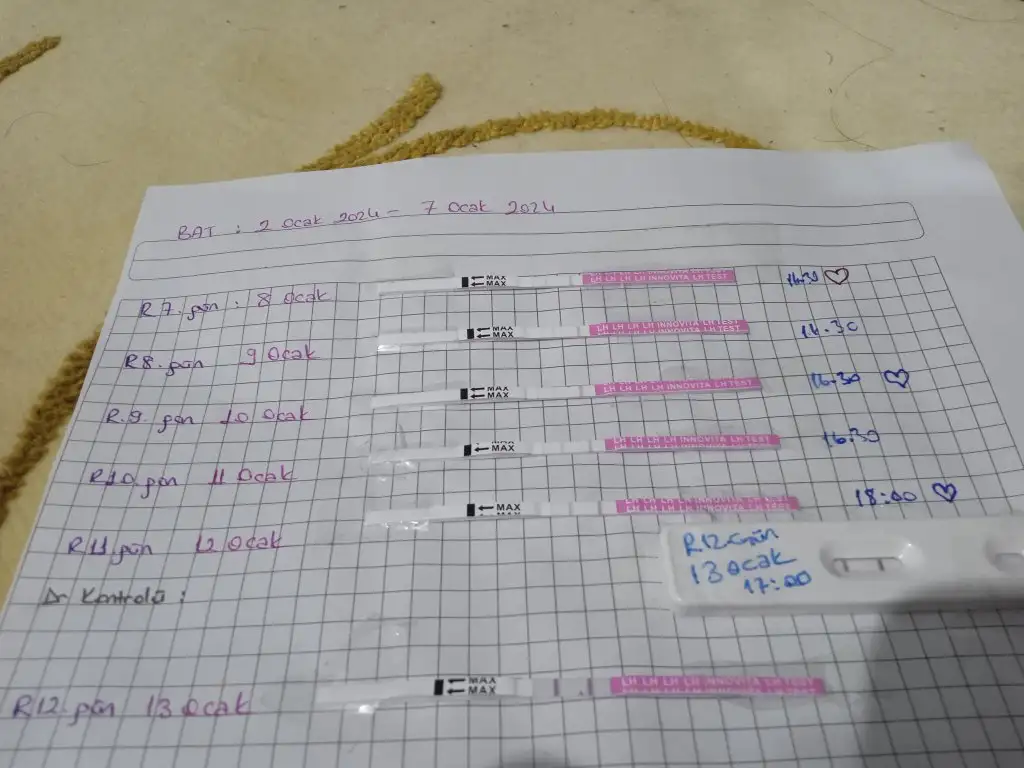 BAT : 2 Ocak 2024 - 7 Ocak 2024
R7.gün : 8 Ocak ←MAX ←MAX LH LH LH LH INNOVITA LH TEST 16:30 ♡
R8.gün 9 Ocak ←MAX ←MAX LH LH LH LH INNOVITA LH TEST 16:30
R.9.gün 10 Ocak ←MAX ←MAX LH LH LH LH INNOVITA LH TEST 16:30 ♡
R10.gün 11 Ocak ←MAX LH LH LH LH INNOVITA LH TEST 16:30
R11.gün 12 Ocak ←MAX LH LH LH LH INNOVITA LH TEST 18:00 ♡
R12.Gün
13 Ocak
17:00
Dr Kontrolü :
R12.gün 13 Ocak ←MAX ←MAX LH LH LH LH INNOVITA LH TEST